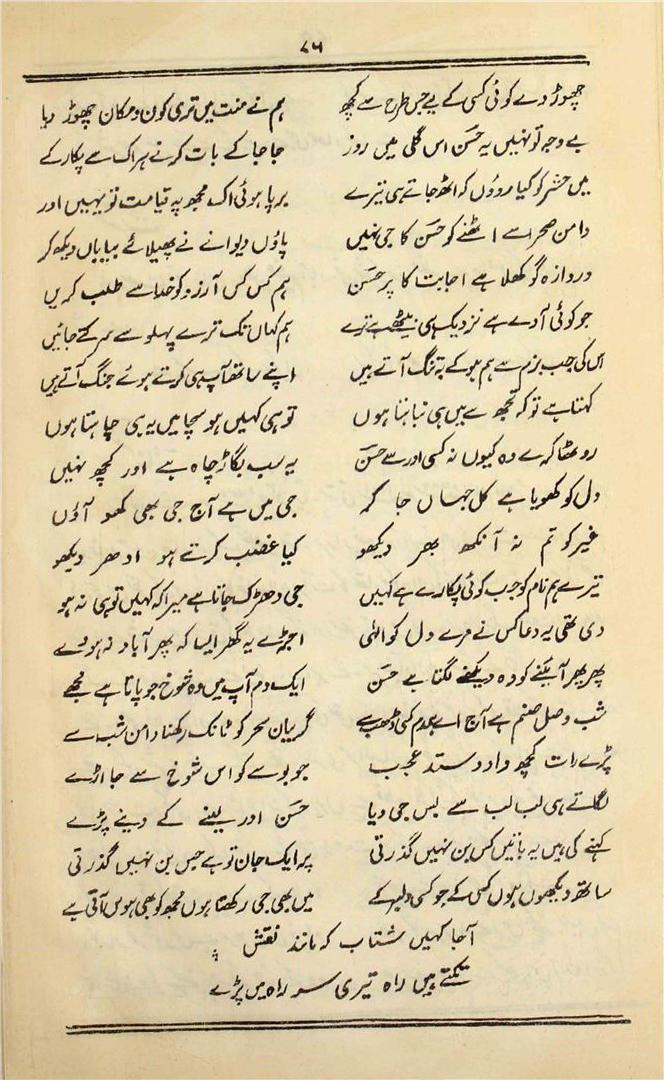 ۸۶
چھوڑ دے کوئی کسی کے لیے جس طرح سے کچھ ہم نے منت میں تری کون و مکان چھوڑ دیا
بے وجہ تو نہیں یہ حسن اس گلی میں روز جا جا کے بات کرنے ہر اک سے پکار کے
میں حشر کو کیا روؤں کہ اٹھ جاتے ہی تیرے برپا ہوئی اک مجھ پہ قیامت تو یہیں اور
دامن صحرا سے اٹھنے کو حسن کا جی نہیں پاؤں دیوانے نے پھیلائے بیاباں دیکھ کر
دروازہ گو کھلا ہے اجابت کا پر حسن ہم کس کس آرزو کو خدا سے طلب کریں
جو کوئی آوے ہے نزدیک ہی بیٹھے ہے ترے ہم کہاں تک ترے پہلو سے سرکتے جائیں
اس کی جب بزم سے ہم ہو کے بہ تنگ آتے ہیں اپنے ساتھ آپ ہی کرتے ہوئے جنگ آتے ہیں
کہتا ہے تو کہ تجھ سے میں ہی نباہتا ہوں تو ہی کہیں ہو سچا میں یہ ہی چاہتا ہوں
روٹھا کرے وہ کیوں نہ کسی اور سے حسن یہ سب بگاڑ چاہ ہے اور کچھ نہیں
دل کو کھویا ہے کل جہاں جا کر جی میں ہے آج جی بھی کھو آؤں
غیر کو تم نہ آنکھ بھر دیکھو کیا غضب کرتے ہو ادھر دیکھو
تیرے ہم نام کو جب کوئی پکارے ہے کہیں جی دھڑک جاتا ہے میرا کہ کہیں تو ہی نہ ہو
دی تھی یہ دعا کس نے مرے دل کو الٰہی اجڑے یہ گھر ایسا کہ پھر آباد نہ ہووے
پھر پھر آئینے کو وہ دیکھنے لگتا ہے حسن ایک دم آپ میں وہ شوخ جو پاتا ہے مجھے
شب وصل صنم ہے آج اے ہمدم کسی ڈھب سے گریبان سحر کو ٹانک رکھنا دامن شب سے
پڑے رات کچھ داد و ستد عجب جو بوسے کو اس شوخ سے جا اڑے
لگاتے ہی لب لب سے بس جی دیا حسن اور لینے کے دینے پڑے
کہنے کی ہیں یہ باتیں کس بن نہیں گذرتی پر ایک جان تو ہے جس بن نہیں گذرتی
ساتھ دیکھوں ہوں کسی کے جو کسی دلبر کے میں بھی جی رکھتا ہوں مجھ کو بھی ہوس آتی ہے
آ جا کہیں شتاب کہ مانند نقش پا
تکتے ہیں راہ تیری سر راہ میں پڑے